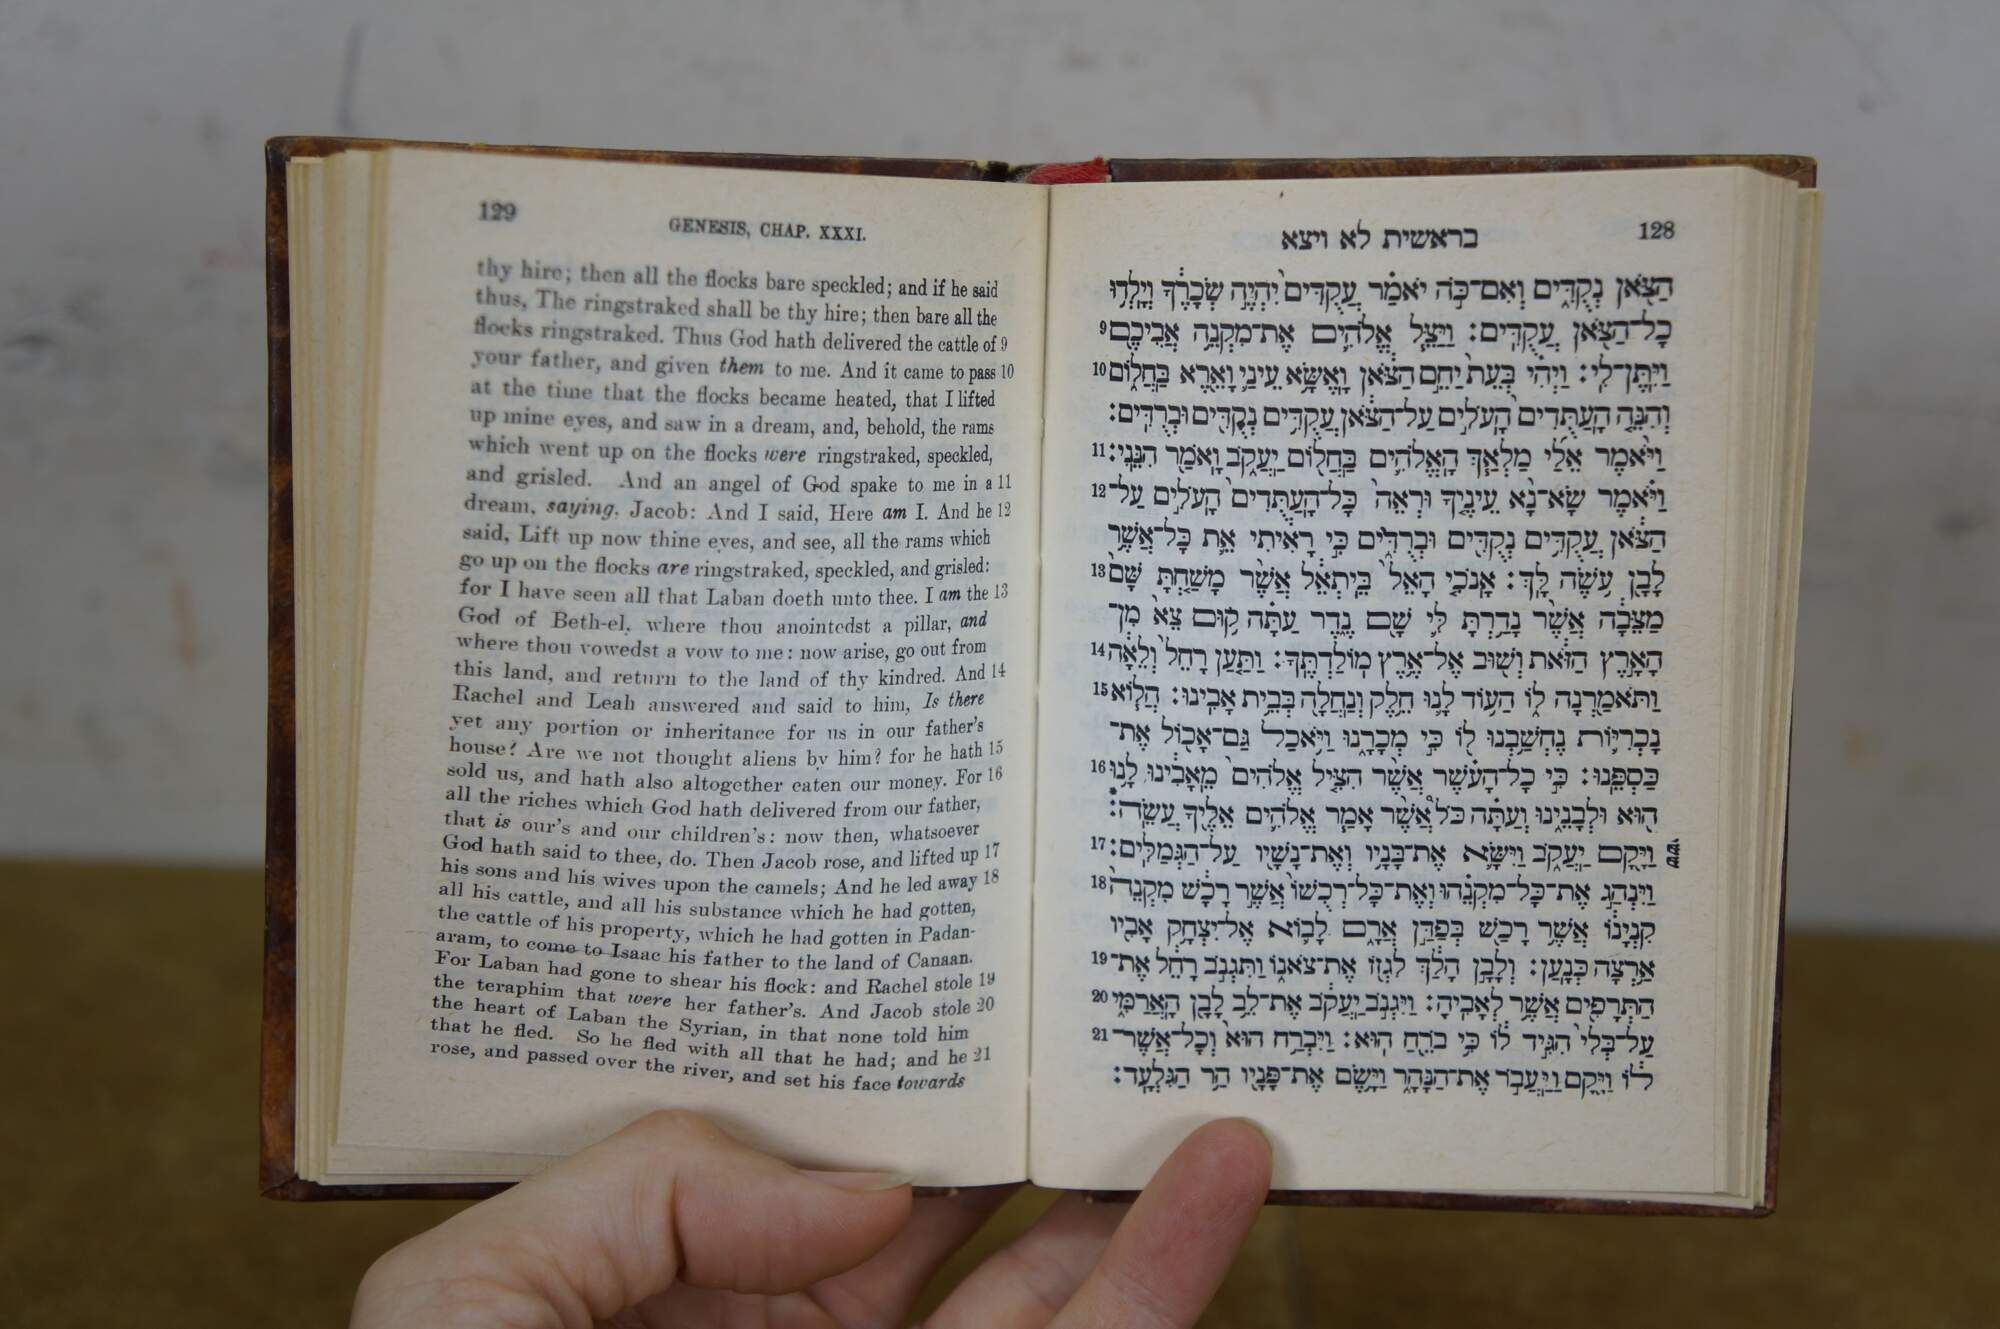 129
GENESIS, CHAP. XXXI.
thy hire; then all the flocks bare speckled; and if he said
thus, The ringstraked shall be thy hire; then bare all the
flocks ringstraked. Thus God hath delivered the cattle of 9
your father, and given them to me. And it came to pass 10
at the time that the flocks became heated, that I lifted
up mine eyes, and saw in a dream, and, behold, the rams
which went up on the flocks were ringstraked, speckled,
and grisled. And an angel of God spake to me in a 11
dream, saying, Jacob: And I said, Here am I. And he 12
said, Lift up now thine eyes, and see, all the rams which
go up on the flocks are ringstraked, speckled, and grisled:
for I have seen all that Laban doeth unto thee. I am the 13
God of Beth-el, where thou anointedst a pillar, and
where thou vowedst a vow to me: now arise, go out from
this land, and return to the land of thy kindred. And 14
Rachel and Leah answered and said to him, Is there
yet any portion or inheritance for us in our father's
house? Are we not thought aliens by him? for he hath 15
sold us, and hath also altogether eaten our money. For 16
all the riches which God hath delivered from our father,
that is our's and our children's: now then, whatsoever
God hath said to thee, do. Then Jacob rose, and lifted up 17
his sons and his wives upon the camels; And he led away 18
all his cattle, and all his substance which he had gotten,
the cattle of his property, which he had gotten in Padan-
aram, to come to Isaac his father to the land of Canaan.
For Laban had gone to shear his flock: and Rachel stole 19
the teraphim that were her father's. And Jacob stole 20
the heart of Laban the Syrian, in that none told him
that he fled. So he fled with all that he had; and he 21
rose, and passed over the river, and set his face towards
128
בראשית לא ויצא
הַצֹּאן נְקֻדִּים וְאִם־כֹּה יֹאמַר עֲקֻדִּים יִהְיֶה שְׂכָרֶךָ וְיָלְדוּ
כָל־הַצֹּאן עֲקֻדִּים׃ וַיַּצֵּל אֱלֹהִים אֶת־מִקְנֵה אֲבִיכֶם 9
וַיִּתֶּן־לִי׃ וַיְהִי בְּעֵת יַחֵם הַצֹּאן וָאֶשָּׂא עֵינַי וָאֵרֶא בַּחֲלוֹם 10
וְהִנֵּה הָעַתֻּדִים הָעֹלִים עַל־הַצֹּאן עֲקֻדִּים נְקֻדִּים וּבְרֻדִּים׃
וַיֹּאמֶר אֵלַי מַלְאַךְ הָאֱלֹהִים בַּחֲלוֹם יַעֲקֹב וָאֹמַר הִנֵּנִי׃ 11
וַיֹּאמֶר שָׂא־נָא עֵינֶיךָ וּרְאֵה כָּל־הָעַתֻּדִים הָעֹלִים עַל־ 12
הַצֹּאן עֲקֻדִּים נְקֻדִּים וּבְרֻדִּים כִּי רָאִיתִי אֵת כָּל־אֲשֶׁר
לָבָן עֹשֶׂה לָּךְ׃ אָנֹכִי הָאֵל בֵּיתְאֵל אֲשֶׁר מָשַׁחְתָּ שָּׁם 13
מַצֵּבָה אֲשֶׁר נָדַרְתָּ לִּי שָׁם נֶדֶר עַתָּה קוּם צֵא מִן־
הָאָרֶץ הַזֹּאת וְשׁוּב אֶל־אֶרֶץ מוֹלַדְתֶּךָ׃ וַתַּעַן רָחֵל וְלֵאָה 14
וַתֹּאמַרְנָה לוֹ הַעוֹד לָנוּ חֵלֶק וְנַחֲלָה בְּבֵית אָבִינוּ׃ הֲלוֹא 15
נָכְרִיּוֹת נֶחְשַׁבְנוּ לוֹ כִּי מְכָרָנוּ וַיֹּאכַל גַּם־אָכוֹל אֶת־
כַּסְפֵּנוּ׃ כִּי כָל־הָעֹשֶׁר אֲשֶׁר הִצִּיל אֱלֹהִים מֵאָבִינוּ לָנוּ 16
הוּא וּלְבָנֵינוּ וְעַתָּה כֹּל אֲשֶׁר אָמַר אֱלֹהִים אֵלֶיךָ עֲשֵׂה׃
וַיָּקָם יַעֲקֹב וַיִּשָּׂא אֶת־בָּנָיו וְאֶת־נָשָׁיו עַל־הַגְּמַלִּים׃ 17
וַיִּנְהַג אֶת־כָּל־מִקְנֵהוּ וְאֶת־כָּל־רְכֻשׁוֹ אֲשֶׁר רָכָשׁ מִקְנֵה 18
קִנְיָנוֹ אֲשֶׁר רָכַשׁ בְּפַדַּן אֲרָם לָבוֹא אֶל־יִצְחָק אָבִיו
אַרְצָה כְּנָעַן׃ וְלָבָן הָלַךְ לִגְזֹז אֶת־צֹאנוֹ וַתִּגְנֹב רָחֵל אֶת־ 19
הַתְּרָפִים אֲשֶׁר לְאָבִיהָ׃ וַיִּגְנֹב יַעֲקֹב אֶת־לֵב לָבָן הָאֲרַמִּי 20
עַל־בְּלִי הִגִּיד לוֹ כִּי בֹרֵחַ הוּא׃ וַיִּבְרַח הוּא וְכָל־אֲשֶׁר־ 21
לוֹ וַיָּקָם וַיַּעֲבֹר אֶת־הַנָּהָר וַיָּשֶׂם אֶת־פָּנָיו הַר הַגִּלְעָד׃